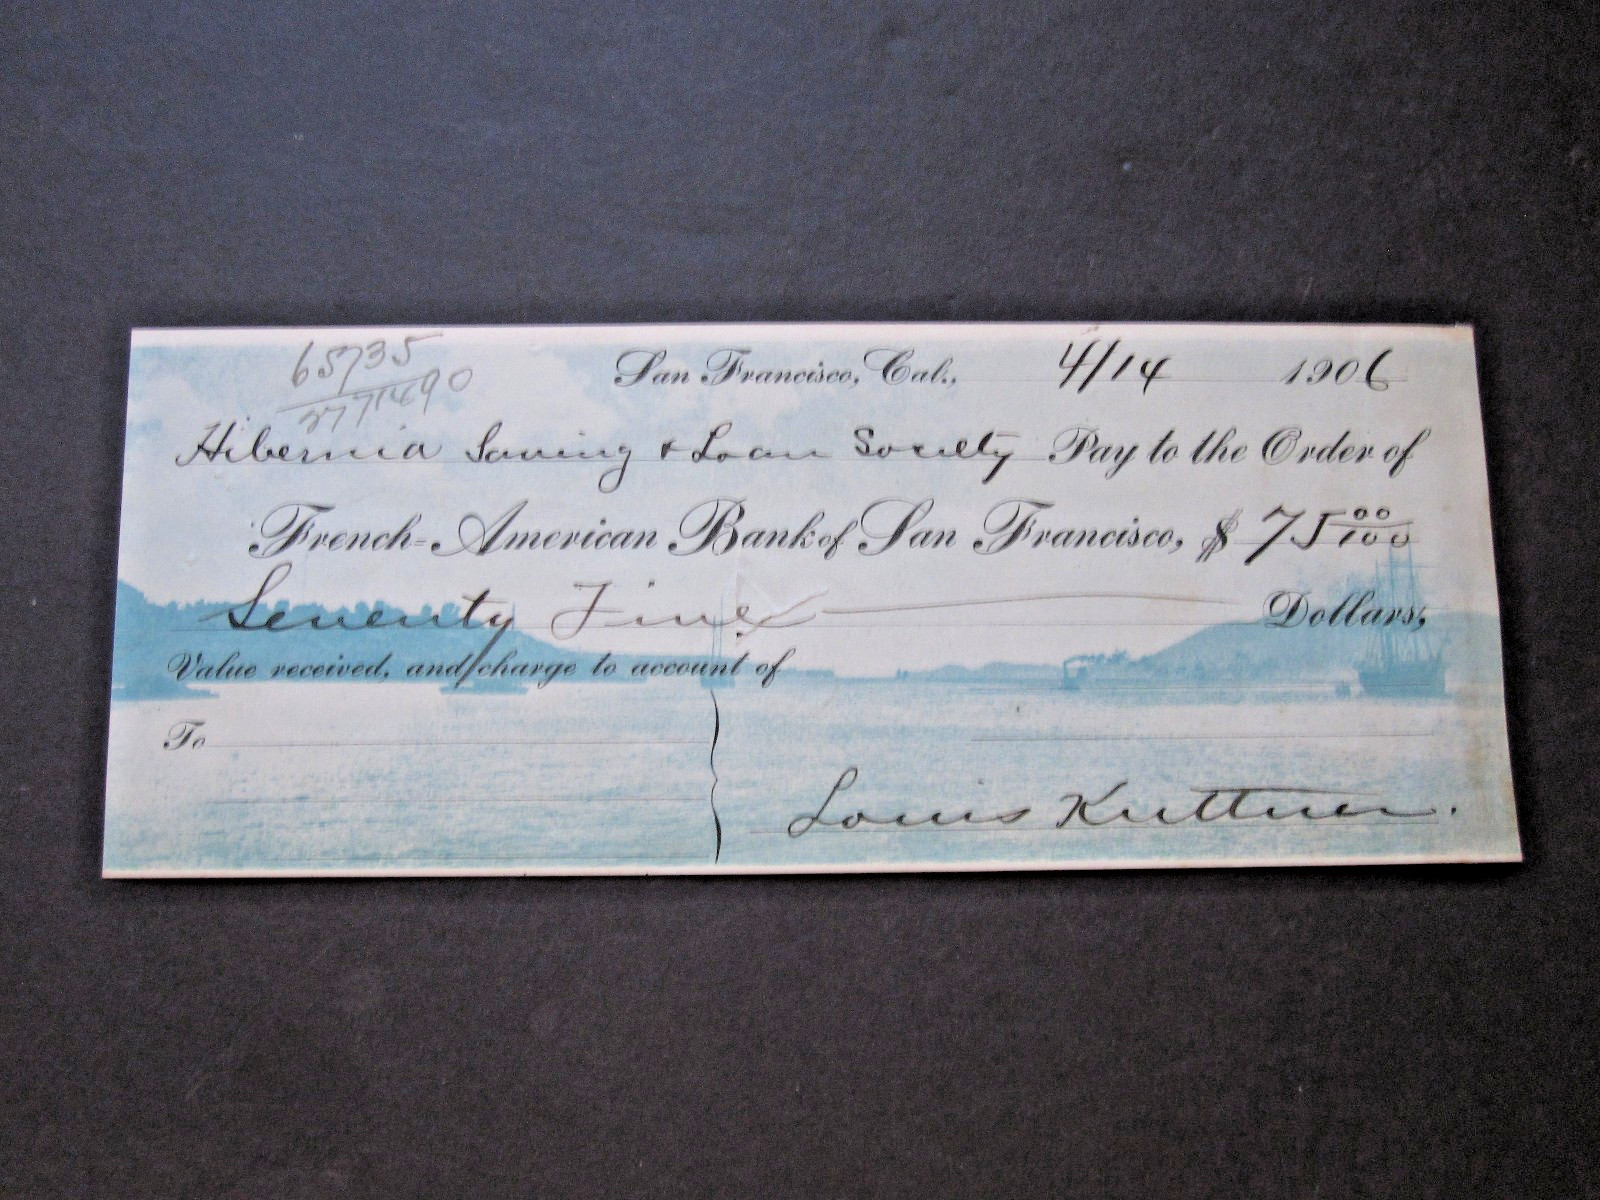 65735
San Francisco, Cal., 4/14 1906
Hibernia Saving & Loan Society Pay to the Order of
French-American Bank of San Francisco, $ 75 00/100
Seventy Five Dollars,
Value received, and charge to account of
To
Louis Kuttner.